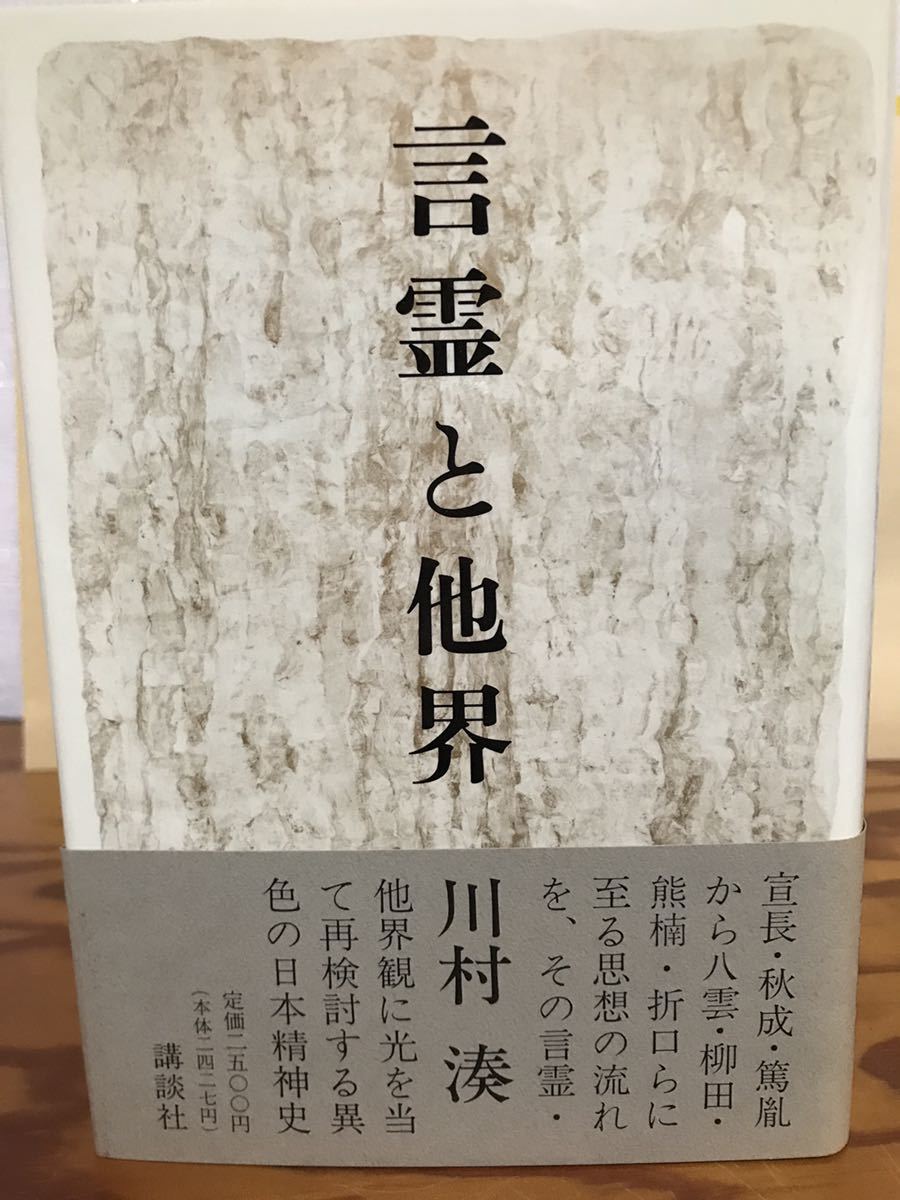 言霊と他界
宣長・秋成・篤胤
から八雲・柳田・
熊楠・折口らに
至る思想の流れ
を、その言霊・
川村 湊
他界観に光を当
て再検討する異
色の日本精神史
定価二五〇〇円
（本体二四二七円）
講談社